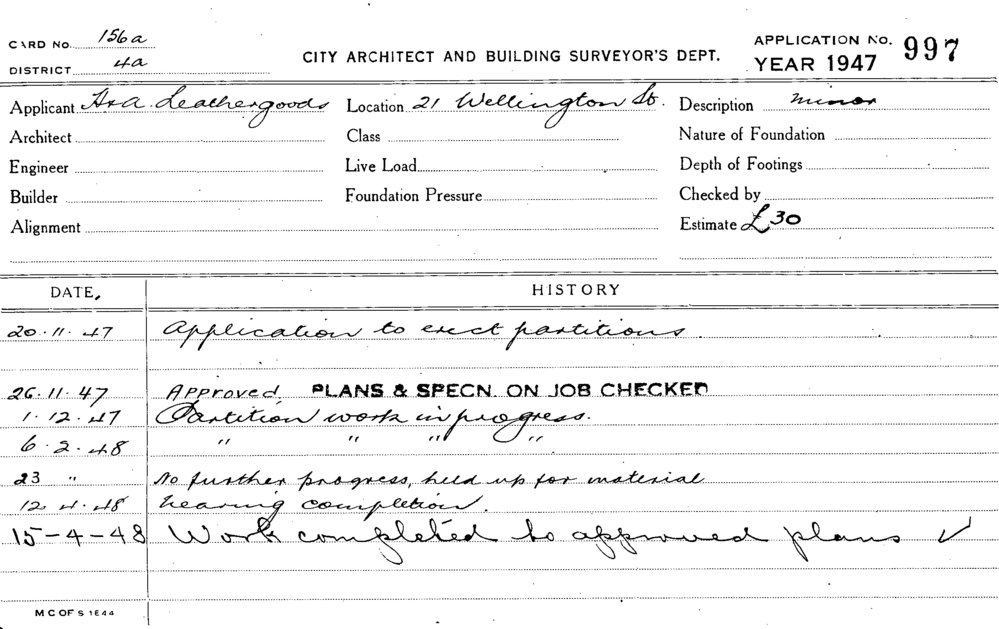 CARD No. 156a
DISTRICT 4a
CITY ARCHITECT AND BUILDING SURVEYOR'S DEPT.
APPLICATION No. 997
YEAR 1947
Applicant Leathergoods Location 21 Wellington St. Description minor
Architect Class Nature of Foundation
Engineer Live Load Depth of Footings
Builder Foundation Pressure Checked by
Alignment Estimate £30
DATE. HISTORY
20.11.47 Application to erect partitions
26.11.47 Approved, PLANS & SPECN. ON JOB CHECKED
1.12.47 Partition work in progress.
6.2.48 " " " "
23 " No further progress, held up for material
12.4.48 nearing completion.
15-4-48 Work completed to approved plans ✓
M C OF S 1844